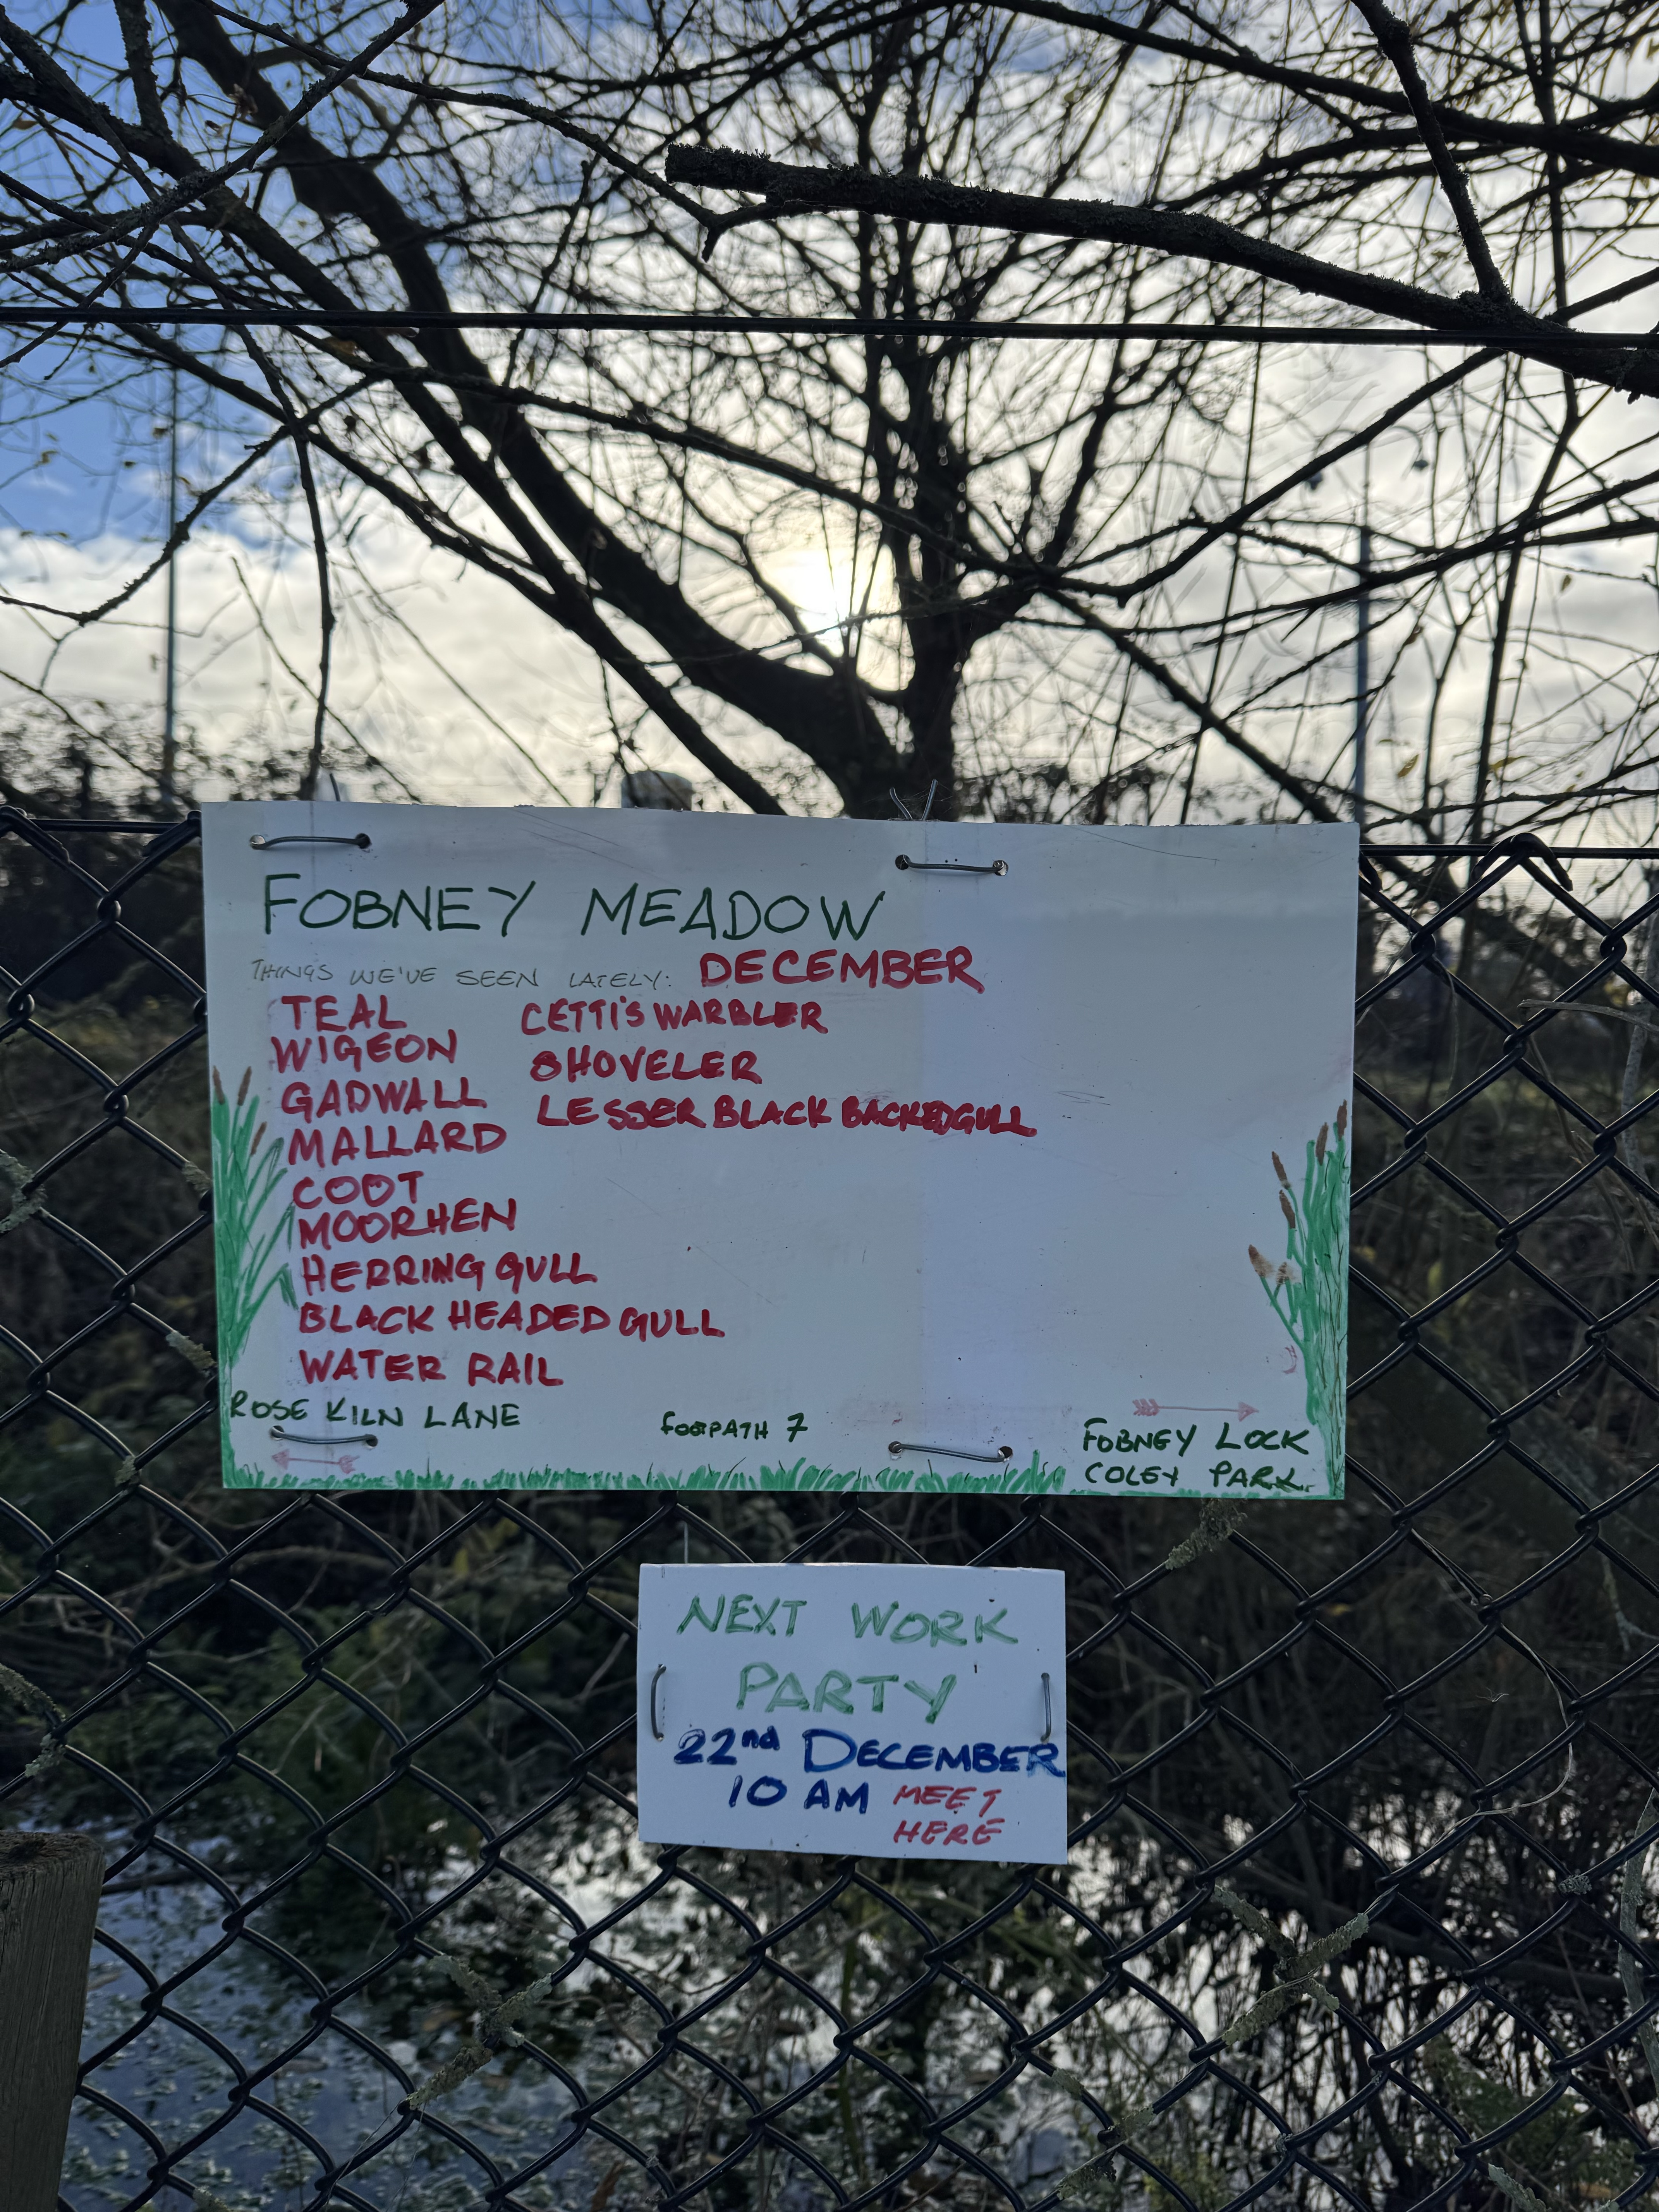 FOBNEY MEADOW
THINGS WE'VE SEEN LATELY: DECEMBER
TEAL
WIGEON
GADWALL
MALLARD
COOT
MOORHEN
HERRING GULL
BLACK HEADED GULL
WATER RAIL
CETTI'S WARBLER
SHOVELER
LESSER BLACK BACKED GULL
ROSE KILN LANE
FOOTPATH 7
FOBNEY LOCK
COLEY PARK.
NEXT WORK
PARTY
22nd DECEMBER
10 AM MEET
HERE